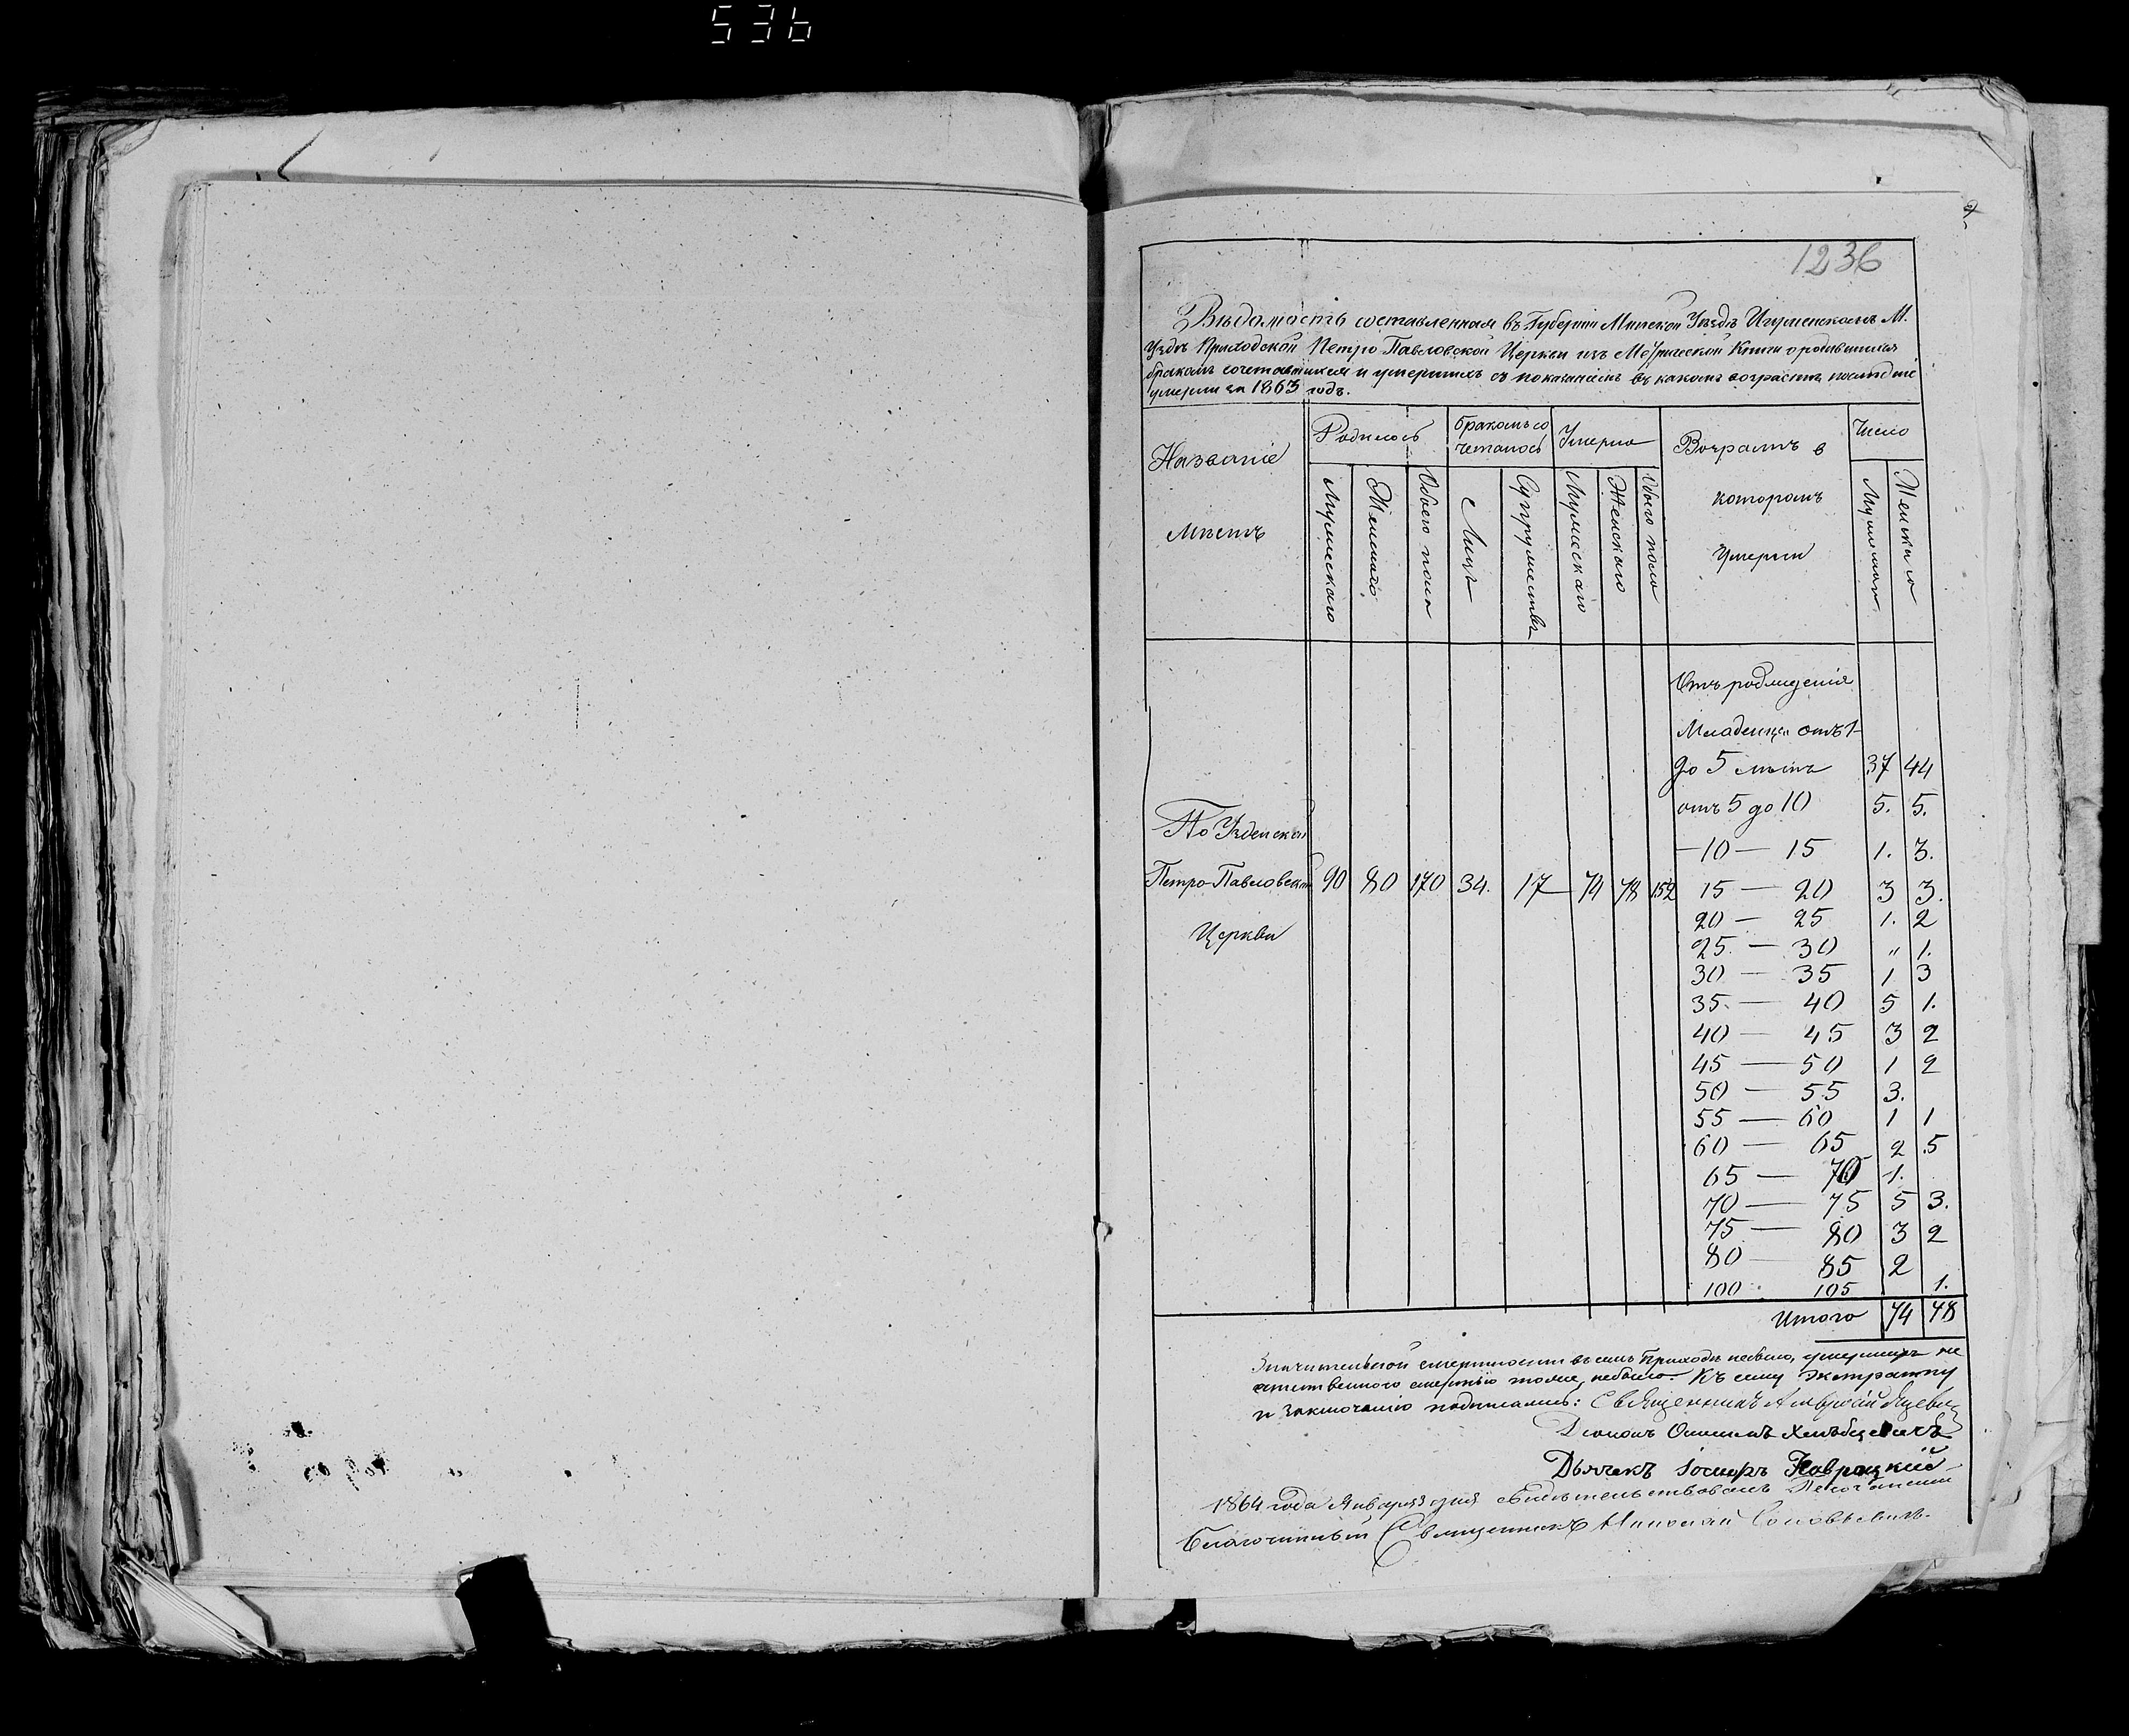 536
1236
Вѣдомость составленная въ Губерніи Минской Уѣздѣ Игуменскомъ М.
Уздѣ Приходской Петро Павловской Церкви изъ Метрической Книги о родившихся
бракомъ сочетавшихся и умершихъ съ показаніемъ въ какомъ возрастѣ послѣдніе
умерли за 1863 годъ.
Названіе Мѣстъ
Родилось
Бракомъ со
четалось
Умерло
Возрастъ в
которомъ
Умерли
Число
Мужескаго
Женскаго
Обоего пола
Лицъ
Супружествъ
Мужескаго
Женскаго
Обоего пола
Мужескаго
Женскаго
Отъ рожденія
Младенца отъ 1
до 5 лѣтъ 37 44
отъ 5 до 10 5. 5.
По Узденской
— 10 — 15 1. 3.
Петро-Павловской 90 80 170 34. 17 74 78 152 15 — 20 3 3.
Церкви
20 — 25 1. 2
25 — 30 " 1.
30 — 35 1 3
35. — 40 5 1.
40 — 45 3 2
45 — 50 1 2
50 — 55 3.
55 — 60 1 1
60 — 65 2 5
65 — 70 1.
70 — 75 5 3.
75 — 80 3 2
80 — 85 2
100 105 1.
Итого 74 78
Значительной смертности въ семъ Приходѣ небыло, умершихъ не
естественною смертію тоже небыло. Къ сему экстракту
и заключенію подписались: Священникъ
Діаконъ Хлѣбцевичъ
Дьячекъ Іосифъ Навроцкій
1864 года Января дня свидѣтельствовалъ
Благочинный Священникъ Николай